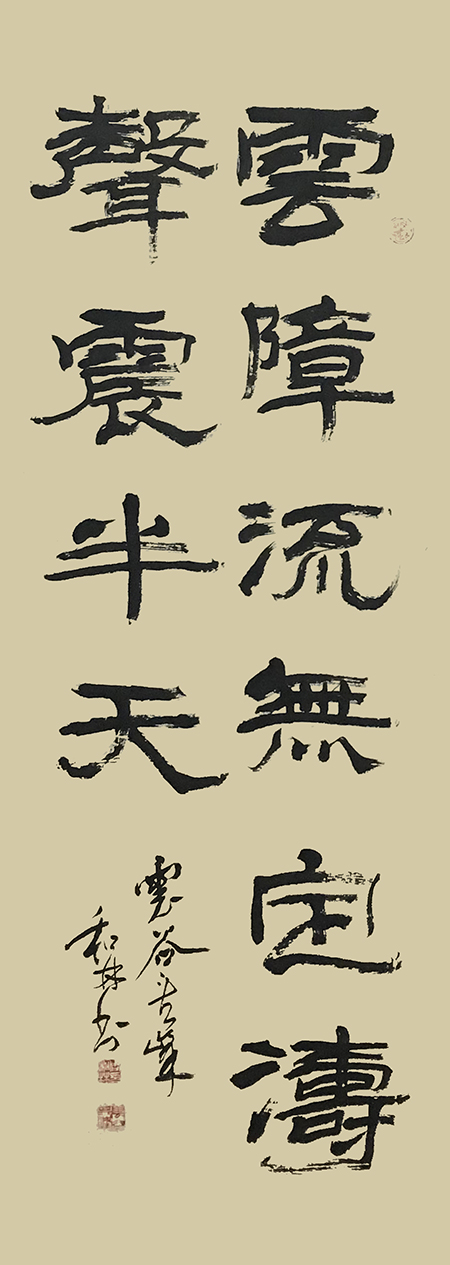 雲障流無定濤
聲震半天
雲谷
和林书